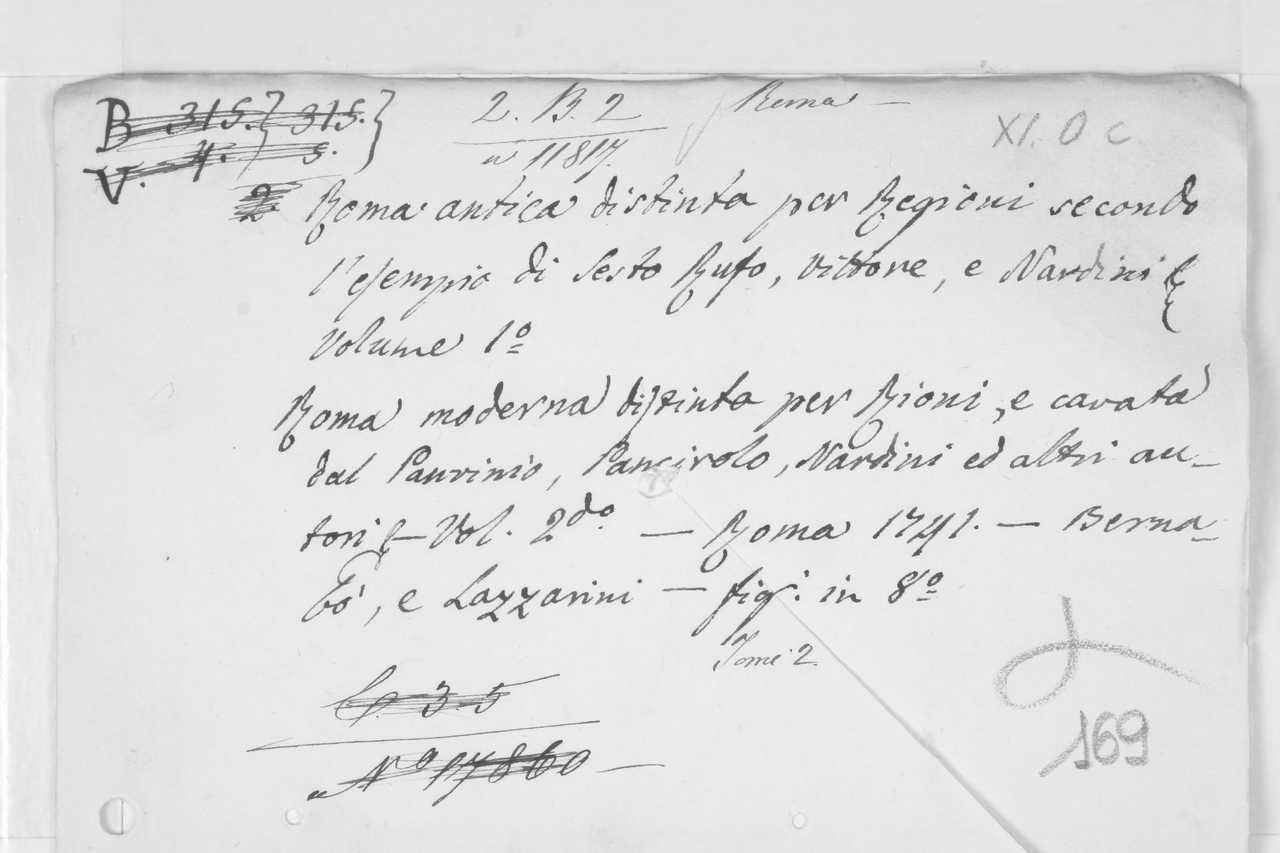 B 315. } 315. }
V. 4. } 5. }
2. B. 2
n 11817.
Roma —
XI. O C
2 Roma antica distinta per Regioni secondo
l'esempio di Sesto Rufo, Vittore, e Nardini &
Volume 1º
Roma moderna distinta per Rioni, e cavata
dal Panvinio, Pancirolo, Nardini ed altri au-
tori & — Vol. 2do. — Roma 1741. — Berna-
bò, e Lazzarini — fig: in 8º
Tomi 2.
3. 5
Nº 17860 —
169